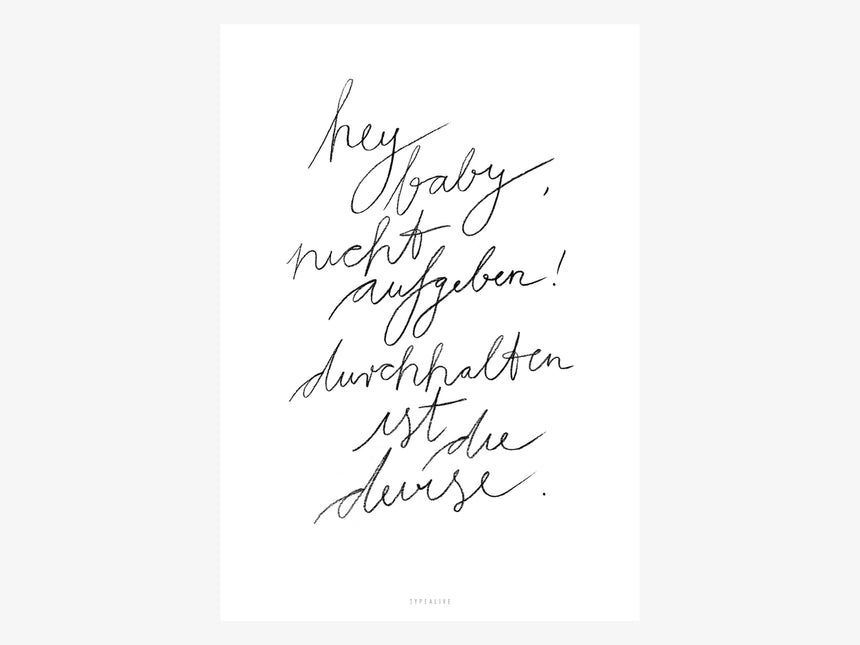 hey
baby,
nicht
aufgeben!
durchhalten
ist die
devise.
TYPEALIVE